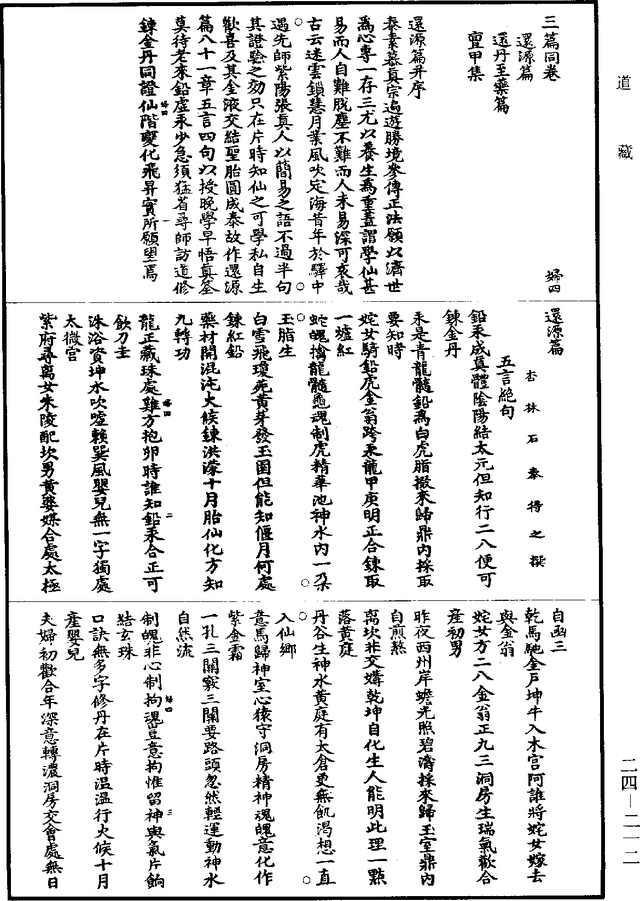 道藏
三篇同卷
還源篇
還丹至藥篇
亶甲集
婦四
還源篇并序
泰素慕真宗遍遊勝境參傳正法願以濟世
為心專一存三尤以養生為重蓋謂學仙甚
易而人自難脫塵不難而人未易深可哀哉
古云迷雲鎖慧月業風吹定海昔年於驛中
遇先師紫陽張真人以簡易之語不過半句
其證驗之効只在片時知仙之可學私自生
歡喜及其金液交結聖胎圓成泰故作還源
篇八十一章五言四句以授晚學早悟真筌
莫待老來鉛虛汞少急須猛省尋師訪道修
鍊金丹同證仙階變化飛昇實所願望焉
還源篇
杏林石泰得之撰
五言絕句
鉛汞成真體陰陽結太元但知行二八便可
鍊金丹
汞是青龍髓鉛為白虎脂掇來歸鼎內採取
要知時
姹女騎鉛虎金翁跨汞龍甲庚明正合鍊取
一爐紅
蛇魄擒龍髓龜魂制虎精華池神水內一朵
玉脂生
白雪飛瓊苑黃芽發玉園但能知偃月何處
鍊紅鉛
藥材開混沌火候鍊洪濛十月胎仙化方知
九轉功
龍正藏珠處雞方抱卵時誰知鉛汞合正可
飲刀圭
沐浴資坤水吹噓賴巽風嬰兒無一字獨處
太微宮
紫府尋離女朱陵配坎男黃婆媒合處太極
自函三
乾馬馳金戶坤牛入木宮阿誰將姹女嫁去
與金翁
姹女方二八金翁正九三洞房生瑞氣歡合
產初男
昨夜西州岸蟾光照碧濤採來歸玉室鼎內
自煎熬
离坎非交媾乾坤自化生人能明此理一點
落黃庭
丹谷生神水黃庭有太倉更無飢渴想一直
入仙鄉
意馬歸神室心猿守洞房精神魂魄意化作
紫金霜
一孔三關竅三關要路頭忽然輕運動神水
自然流
制魄非心制拘魂豈意拘惟留神與氣片餉
結玄珠
口訣無多字修丹在片時温温行火候十月
產嬰兒
夫婦初歡合年深意轉濃洞房交會處無日
二四—二一二